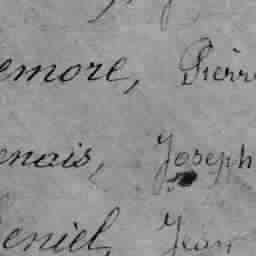 emore, Pierre
enais, Joseph
eniel, Jean